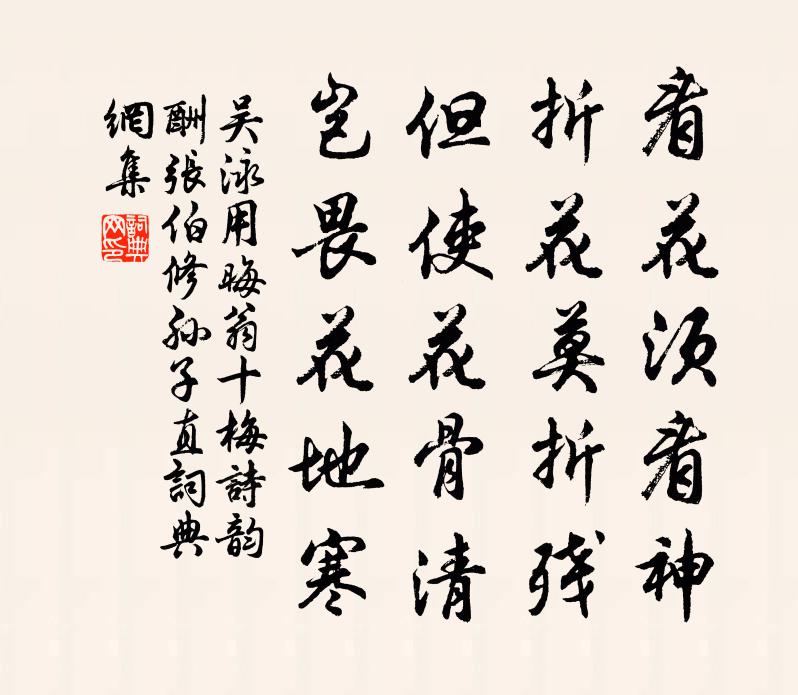 看花须看神
折花莫折残
但使花骨清
岂畏花地寒
吴泳用晦翁十梅詩韵
酬張伯修孙子直詞典
網集
詞典
网印